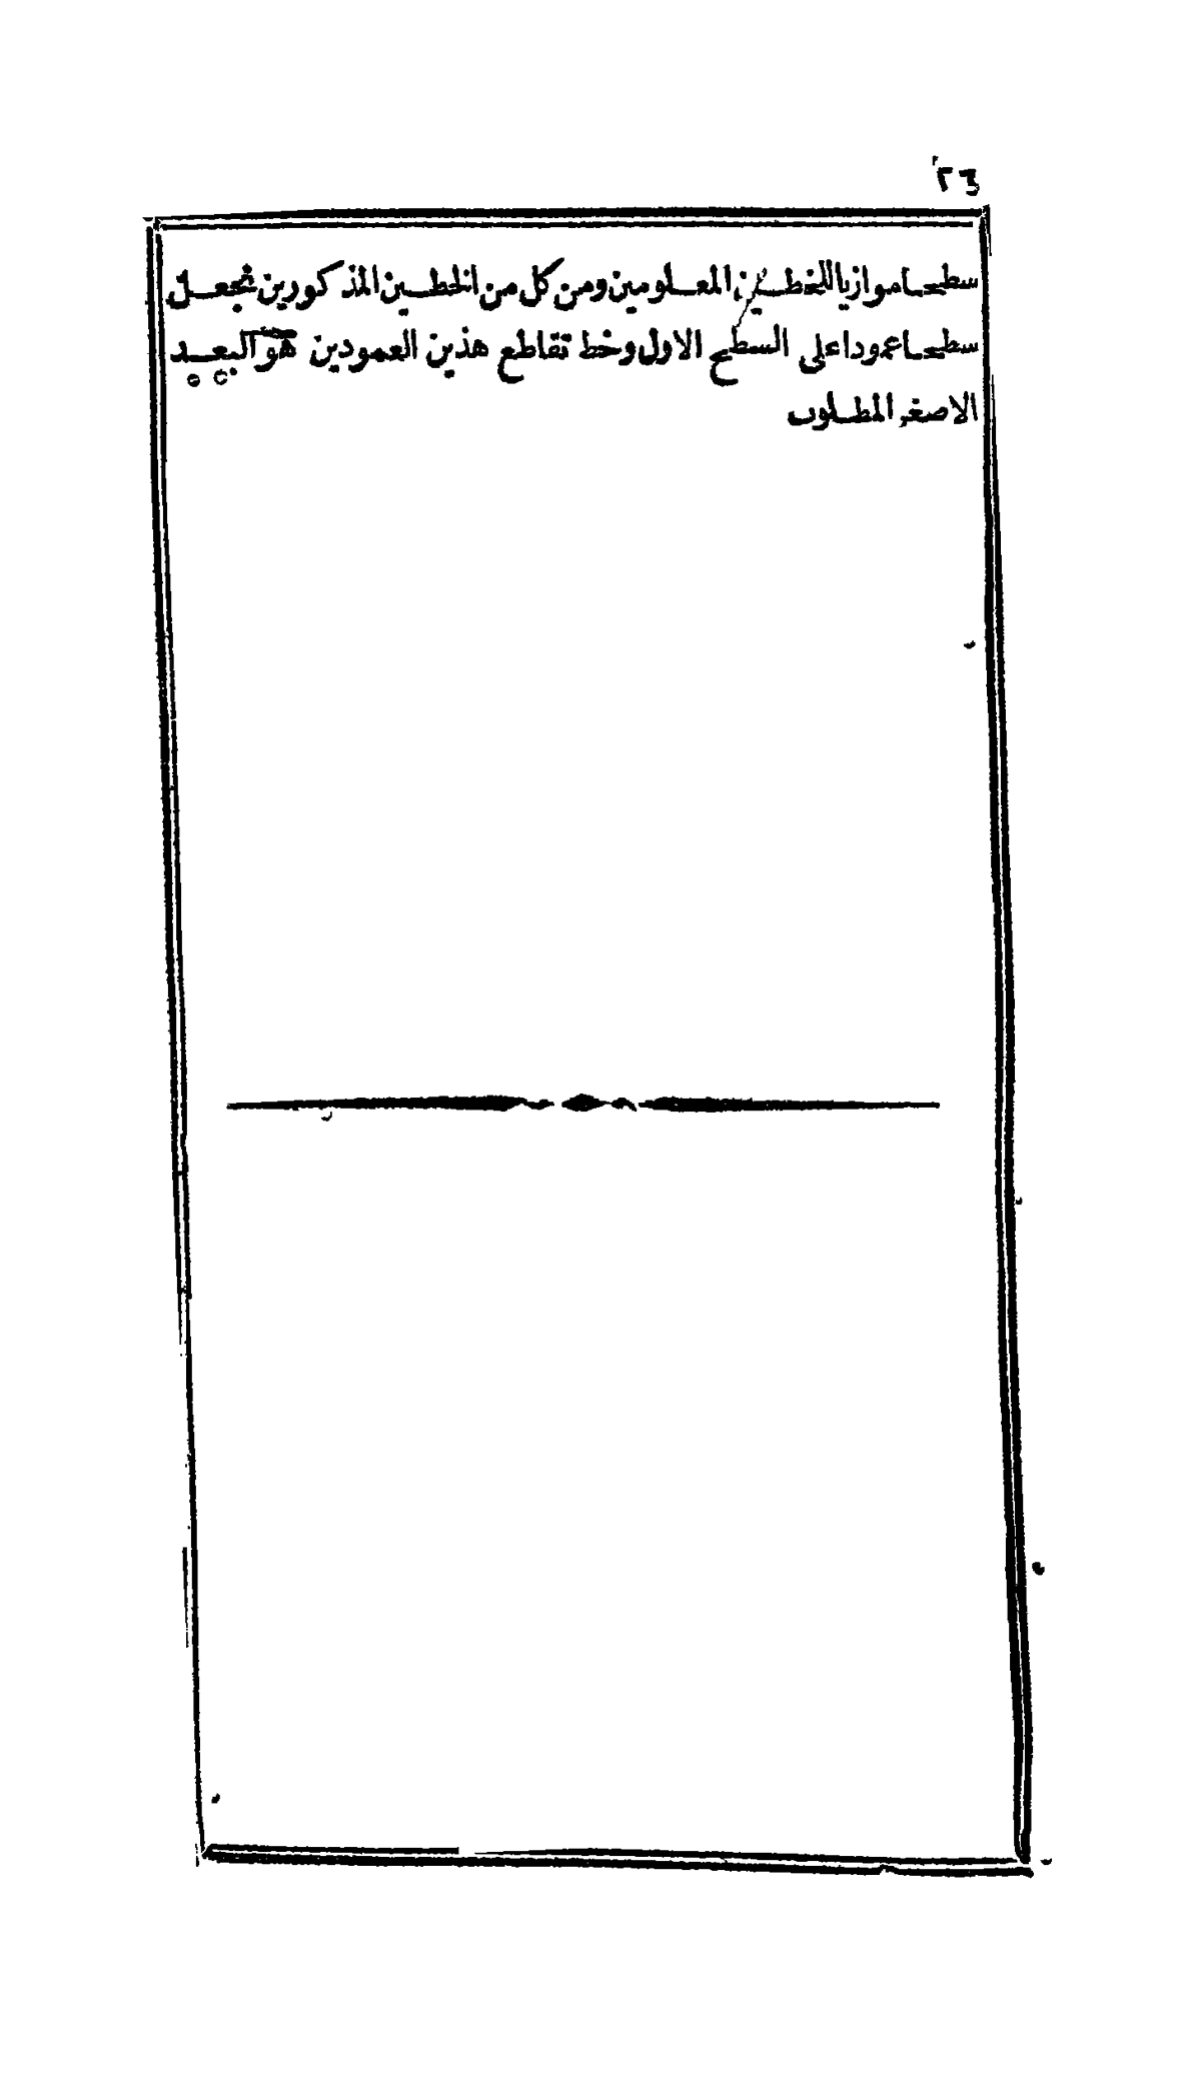 ٢٦
سطحا موازيا للخطين المعلومين ومن كل من الخطين المذكورين تجعل
سطحا عمودا على السطح الاول وخط تقاطع هذين العمودين هو البعد
الاصغر المطلوب